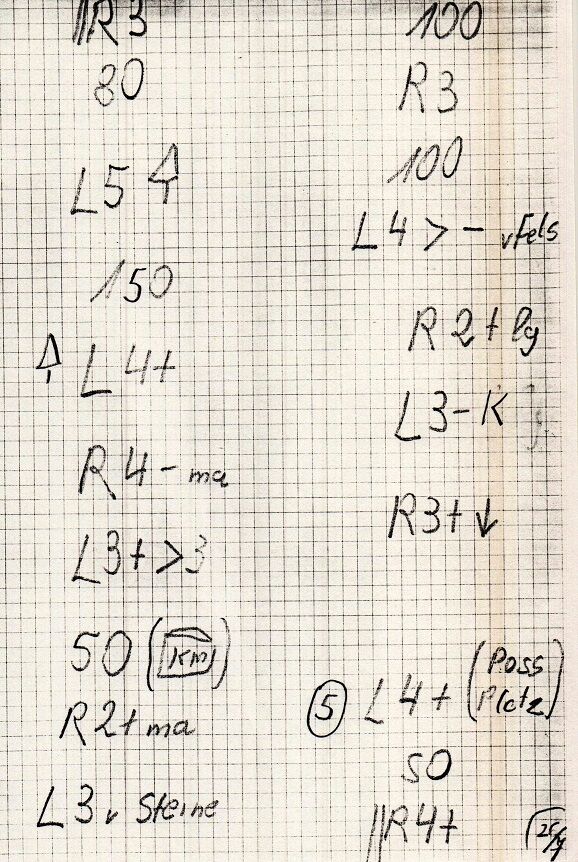 ||R3
80
L5
150
L4+
R4- ma
L3+ >3
50 (KM)
R2+ ma
L3 v Steine
100
R3
100
L4 > - v Fels
R2+ lg
L3- K
R3+ ↓
⑤ L4+ (Poss
Platz)
50
||R4+